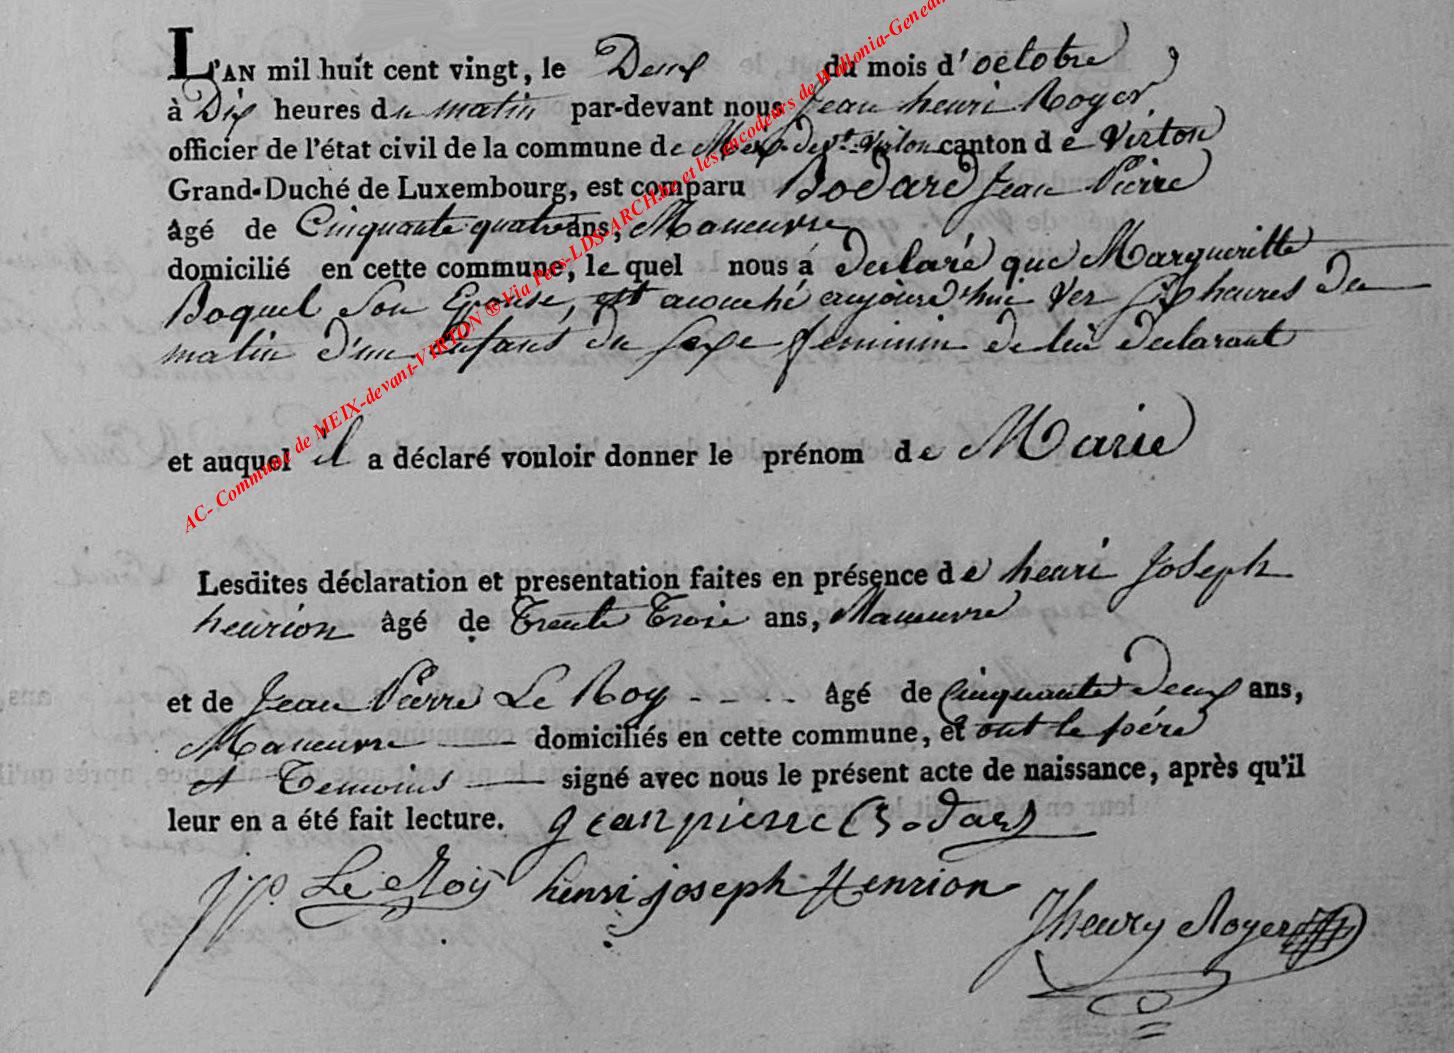 L'AN mil huit cent vingt, le Deux du mois d'octobre
à Dix heures du matin par-devant nous Jean henri Royer
officier de l'état civil de la commune de Meix-devt-Virton canton de Virton
Grand-Duché de Luxembourg, est comparu Bodard Jean Pierre
âgé de Cinquante quatre ans, Maneuvre
domicilié en cette commune, le quel nous á declaré que Margueritte
Boquel Son Epouse, est acouché aujourd'hui Six heures du
matin d'un Enfant du Sexe feminin de lui declarant
et auquel il a déclaré vouloir donner le prénom de Marie
Lesdites déclaration et presentation faites en présence de henri Joseph
henrion âgé de Trente Trois ans, Maneuvre
et de Jean Pierre Le Roy - - - - âgé de Cinquante Deux ans,
Maneuvre — domiciliés en cette commune, et ont le pére
et Temoins — signé avec nous le présent acte de naissance, après qu'il
leur en a été fait lecture. jean pierre Bodard
jp. Le Roy henri joseph Henrion
Jhenry Royer
AC- Commune de MEIX-devant-VIRTON ® Via Pers-LDS-ARCH.be et les encodeurs de Hallonia-Geneal